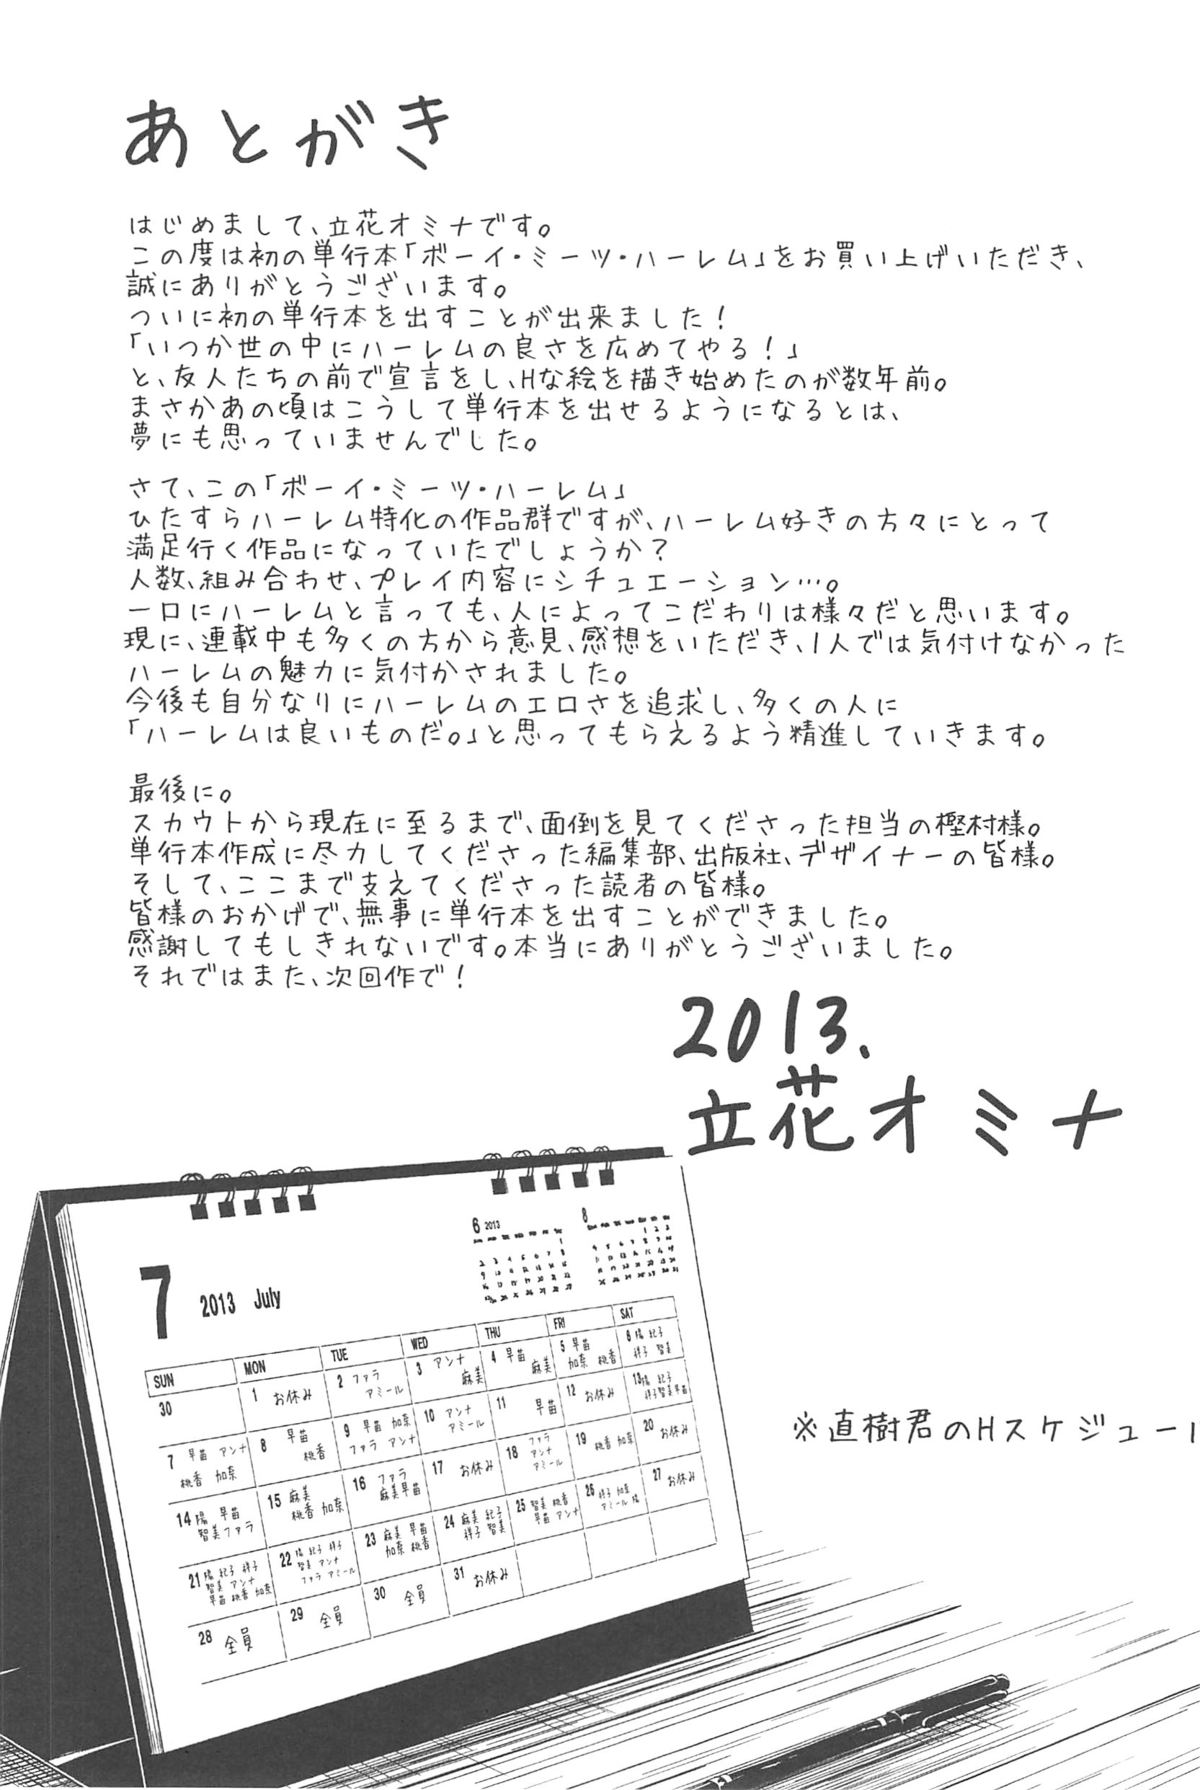 あとがき
はじめまして、立花オミナです。
この度は初の単行本「ボーイ・ミーツ・ハーレム」をお買い上げいただき、
誠にありがとうございます。
ついに初の単行本を出すことが出来ました！
「いつか世の中にハーレムの良さを広めてやる！」
と、友人たちの前で宣言をし、Hな絵を描き始めたのが数年前。
まさかあの頃はこうして単行本を出せるようになるとは、
夢にも思っていませんでした。
さて、この「ボーイ・ミーツ・ハーレム」
ひたすらハーレム特化の作品群ですが、ハーレム好きの方々にとって
満足行く作品になっていたでしょうか？
人数、組み合わせ、プレイ内容にシチュエーション…。
一口にハーレムと言っても、人によってこだわりは様々だと思います。
現に、連載中も多くの方から意見、感想をいただき、1人では気付けなかった
ハーレムの魅力に気付かされました。
今後も自分なりにハーレムのエロさを追求し、多くの人に
「ハーレムは良いものだ。」と思ってもらえるよう精進していきます。
最後に。
スカウトから現在に至るまで、面倒を見てくださった担当の樫村様。
単行本作成に尽力してくださった編集部、出版社、デザイナーの皆様。
そして、ここまで支えてくださった読者の皆様。
皆様のおかげで、無事に単行本を出すことができました。
感謝してもしきれないです。本当にありがとうございました。
それではまた、次回作で！
2013.
立花オミナ
6 2013
8
7 2013 July
SUN MON TUE WED THU FRI SAT
30
1 お休み
2 ファラ
アミール
3 アンナ
麻美
4 早苗
麻美
5 早苗
加奈 桃香
6 陽 紀子
祥子 智美
7 早苗 アンナ
桃香 加奈
8 早苗
桃香
9 早苗 加奈
ファラ アンナ
10 アンナ
アミール
11 早苗
12 お休み
13 陽 紀子
祥子 智美 早苗
14 陽 早苗
智美 ファラ
15 麻美
桃香 加奈
16 ファラ
麻美 早苗
17 お休み
18 ファラ
アンナ
アミール
19 桃香 加奈
20 お休み
21 陽 紀子 祥子
智美 アンナ
早苗 桃香 加奈
22 陽 紀子 祥子
智美 アンナ
ファラ アミール
23 麻美 早苗
加奈 桃香
24 麻美 紀子
祥子 智美
25 智美 桃香
早苗 アンナ
26 祥子 加奈
アミール 陽
27 お休み
28 全員
29 全員
30 全員
31 お休み
※直樹君のHスケジュー